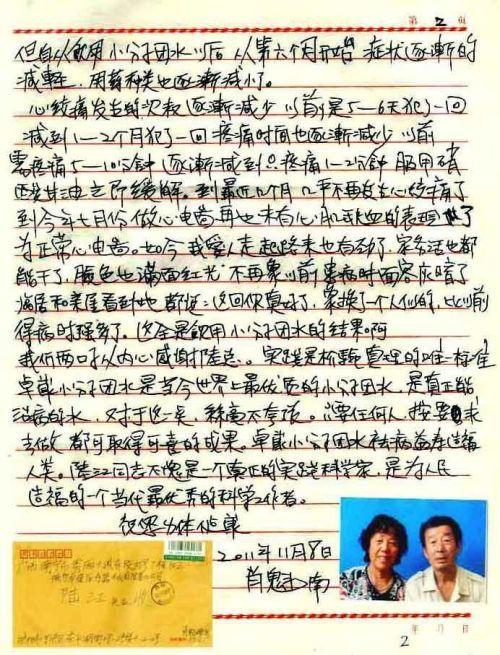 第2页
但自从饮用小分子团水以后 从第六个月开始 症状逐漸的
减輕，用药种类也逐漸减小了。
心绞痛发生的次数逐漸减少 以前是5—6天犯了一回
减到1—2个月犯了一回 疼痛时间也逐漸减少 以前
需疼痛5—10分钟 逐漸减到只疼痛1—2分钟 服用硝
酸甘油立即缓解。到最近几个月 几乎不再发生心绞痛了
到今年七月份做心电啚 再也未有心肌缺血的表现
为正常心电啚。如今我爱人走起路来也有劲了，家务活也都
能干了，脸色也满面红光 不再象以前患病时面容灰暗了
临居和亲属看到她都说：这回你真好了，象换了一个人似的，比以前
得病时强多了。这全是飲用小分子团水的结果啊
我们两口子从内心感谢陆总。实践是检驗真理的唯一标准
卓葳小分子团水是当今世界上最优质的小分子团水，是真正能
治病的水，对于这一点，絲毫不夸张。只要任何人，按要求
去做 都可取得可喜的成果。卓葳小分子团水祛病益寿造福
人类。陆江同志不愧是一个真正的实践科学家，是为人民
造福的一个当代最优秀的科学工作者。
祝您身体健康
2011年11月8日
陆江
年月日
2